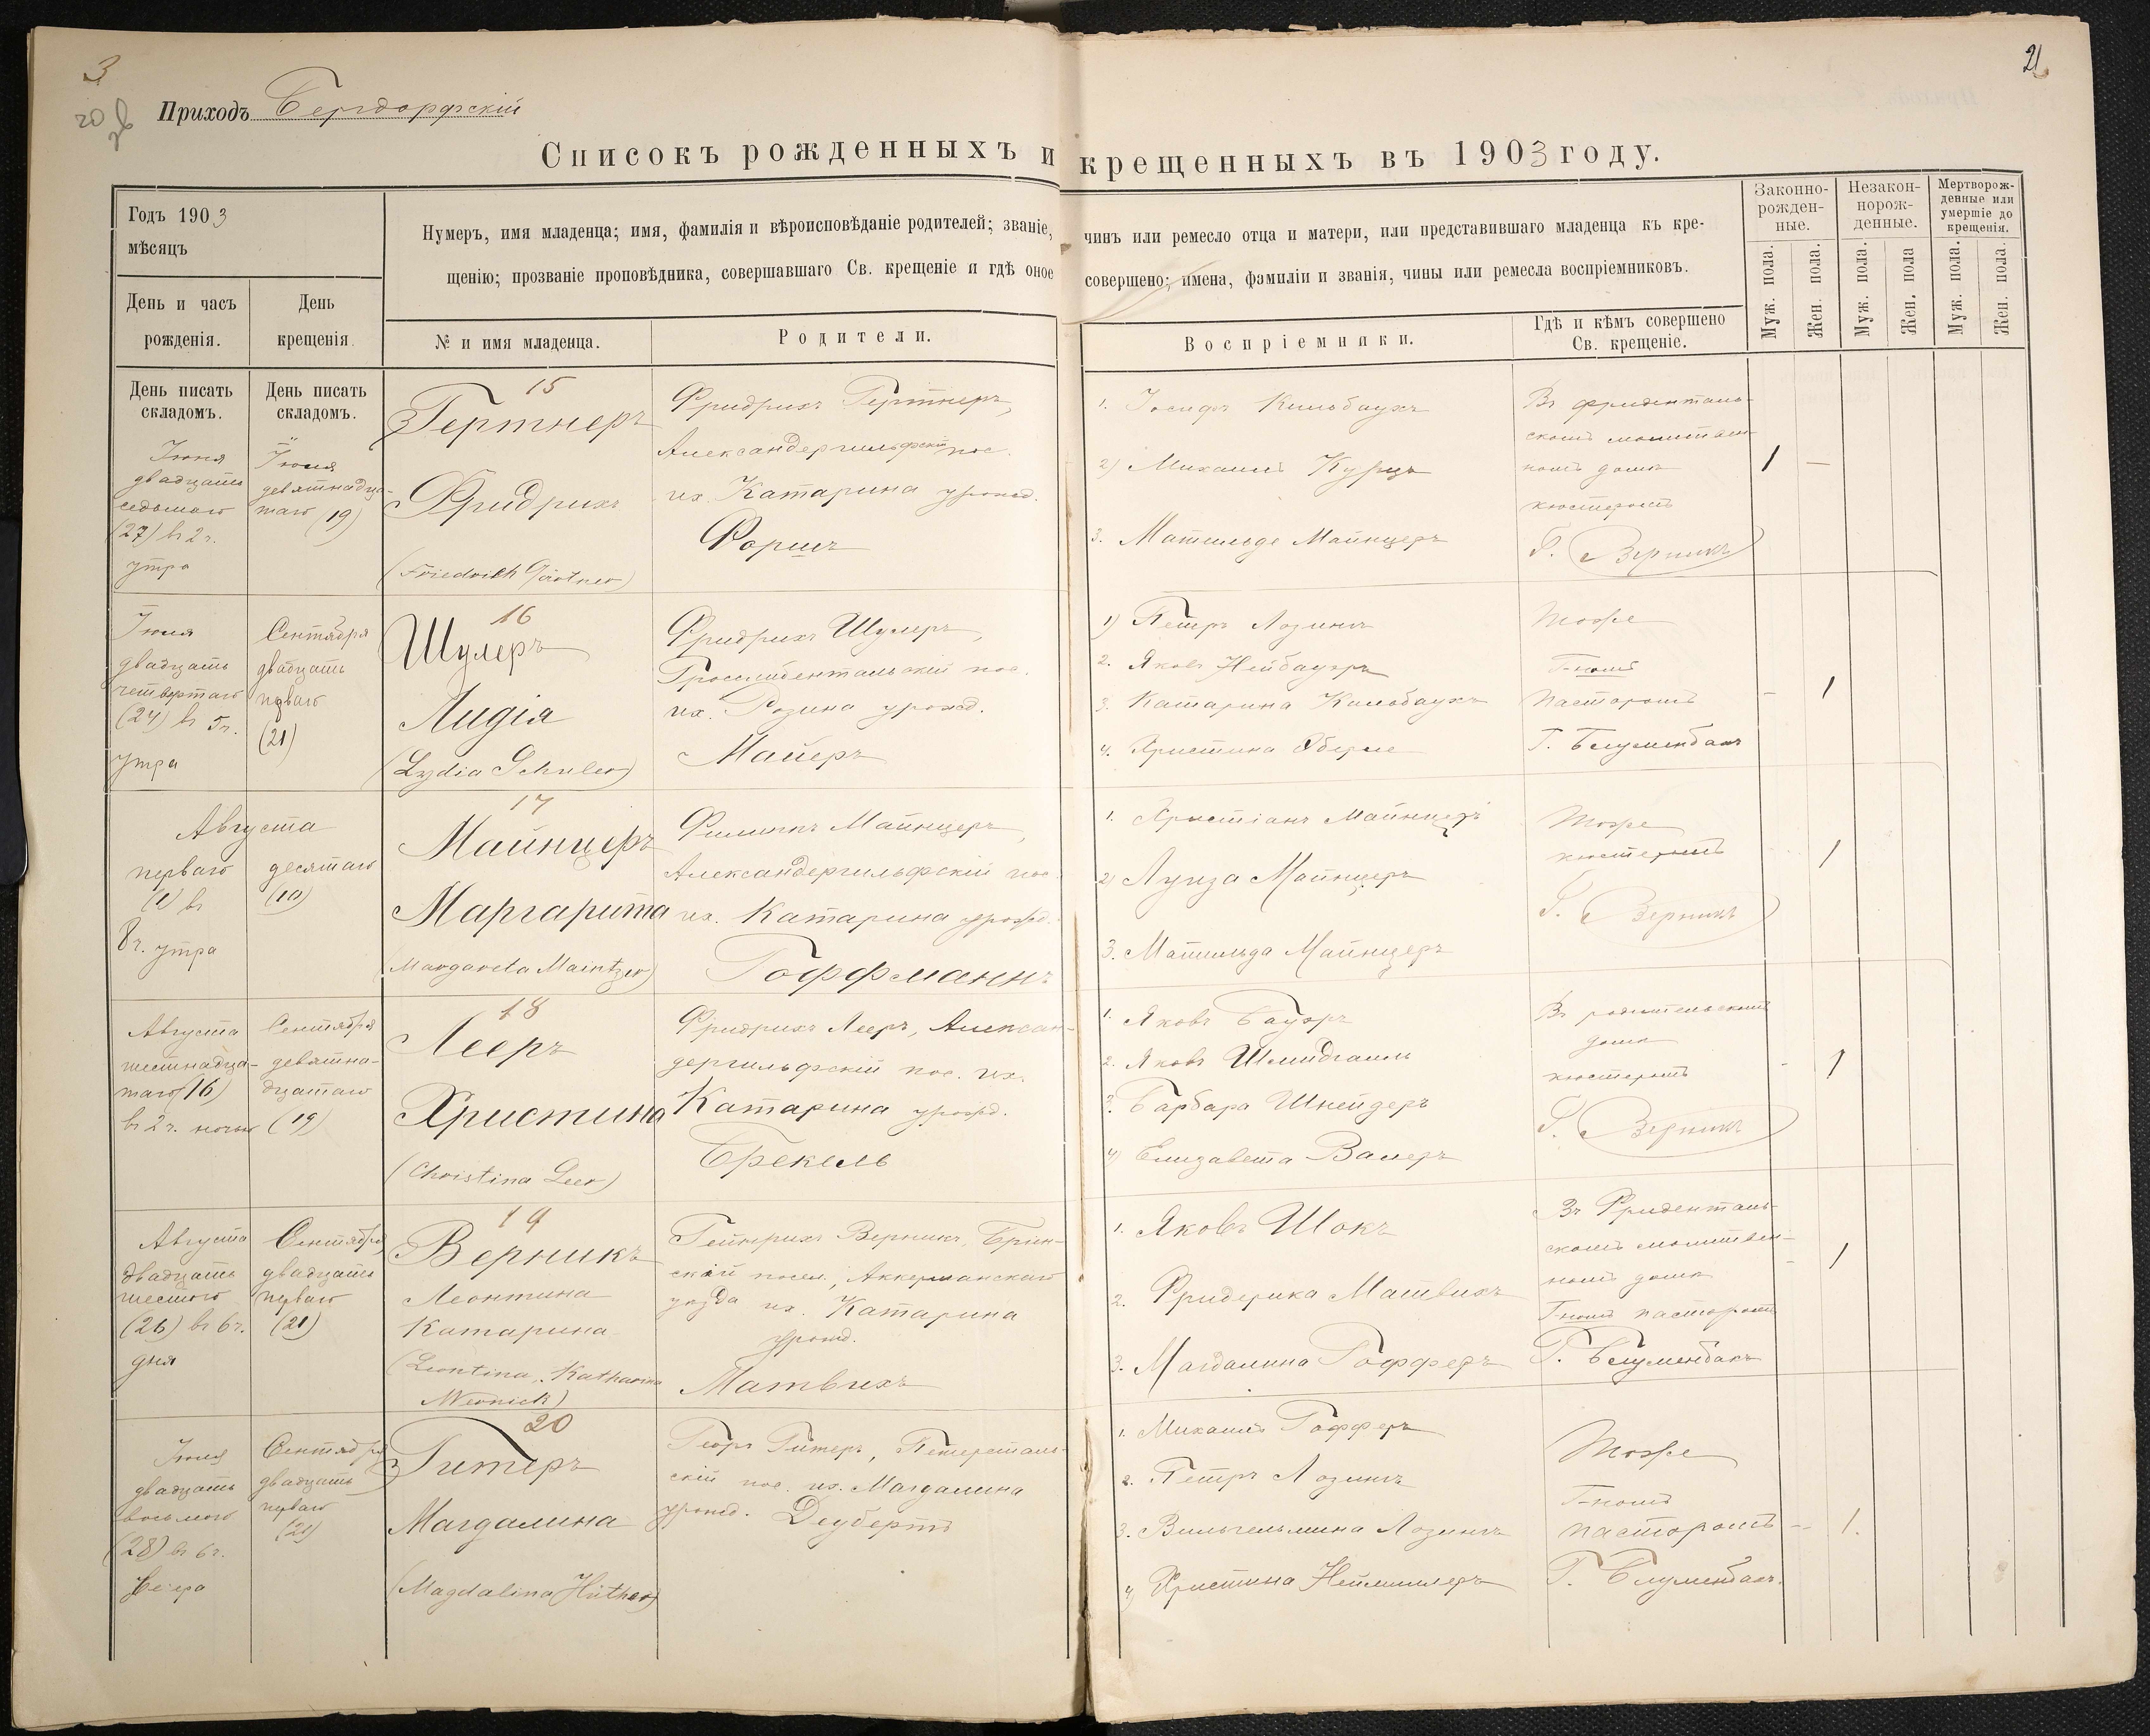 3
20 зв
21
Приходъ Бергдорфскій
Списокъ рожденныхъ и крещенныхъ въ 1903 году.
Годъ 1903
мѣсяцъ
День и часъ
рожденія.
День
крещенія.
Нумеръ, имя младенца; имя, фамилія и вѣроисповѣданіе родителей; званіе, чинъ или ремесло отца и матери, или представившаго младенца къ кре-
щенію; прозваніе проповѣдника, совершавшаго Св. крещеніе и гдѣ оное совершено; имена, фамиліи и званія, чины или ремесла воспріемниковъ.
№ и имя младенца.
Родители.
Воспріемники.
Гдѣ и кѣмъ совершено
Св. крещеніе.
Законно-
рожден-
ные.
Незакон-
норож-
денные.
Мертворож-
денные или
умершіе до
крещенія.
Муж. пола.
Жен. пола.
Муж. пола.
Жен. пола
Муж. пола.
Жен. пола.
День писать
складомъ.
День писать
складомъ.
Іюня
двадцать
седьмого
(27) въ 2 ч.
утра
Іюля
девятнадца-
таго (19)
15
Гертнеръ
Фридрихъ
(Friedrich Gärtner)
Фридрихъ Гертнеръ,
Александергильфскій пос.
их. Катарина урожд.
Форшъ
1. Іосифъ Кильбаухъ
2) Михаилъ Курцъ
3. Матильде Майнцеръ
Въ фриденталь-
скомъ молитвен-
номъ домѣ
кюстеромъ
Г. Верникъ
1 —
Іюля
двадцать
четвертаго
(24) въ 5 ч.
утра
Сентября
двадцать
перваго
(21)
16
Шулеръ
Лидія
(Lydia Schuler)
Фридрихъ Шулеръ,
Гросслибентальскій пос.
их. Розина урожд.
Майеръ
1) Петръ Лозингъ
2. Яковъ Нейбауэръ
3. Катарина Кильбаухъ
4. Христина Оберле
Тоже
Г-номъ
пасторомъ
Г. Блуменбахъ
- 1
Августа
перваго
(1) въ
8 ч. утра
десятаго
(10)
17
Майнцеръ
Маргарита
(Margareta Maintzer)
Филиппъ Майнцеръ,
Александергильфскій пос.
их. Катарина урожд.
Гоффманнъ
1. Христіанъ Майнцеръ
2) Луиза Майнцеръ
3. Матильда Майнцеръ
Тоже
кюстеромъ
Г. Верникъ
1
Августа
шестнадца-
таго (16)
въ 2 ч. ночью
Сентября
девятна-
дцатаго
(19)
18
Лееръ
Христина
(Christina Leer)
Фридрихъ Лееръ, Алексан-
дергильфскій пос. их.
Катарина урожд.
Брекель
1. Яковъ Бауэръ
2. Яковъ Шмидгалль
3. Барбара Шнейдеръ
4) Елизавета Валеръ
Въ родительскомъ
домѣ
кюстеромъ
Г. Верникъ
- 1
Августа
двадцать
шестого
(26) въ 6 ч.
дня
Сентября
двадцать
перваго
(21)
19
Верникъ
Леонтина
Катарина
(Leontina, Katharina
Wernick)
Гейнрихъ Верникъ, Бріен-
скій посел., Аккерманскаго
уѣзда их. Катарина
урожд.
Матвихъ
1. Яковъ Шокъ
2. Фридерика Матвихъ
3. Магдалина Гофферъ
Въ Фриденталь-
скомъ молитвен-
номъ домѣ
Г-номъ пасторомъ
Г. Блуменбахъ
- 1
Іюля
двадцать
восьмого
(28) въ 6 ч.
вечера
Сентября
двадцать
перваго
(21)
20
Гитеръ
Магдалина
(Magdalina Hüther)
Георгъ Гитеръ, Петерсталь-
скій пос. их. Магдалина
урожд. Деубертъ
1. Михаилъ Гофферъ
2. Петръ Лозингъ
3. Вильгельмина Лозингъ
4) Христина Неймиллеръ
Тоже
Г-номъ
пасторомъ
Г. Блуменбахъ.
- 1.